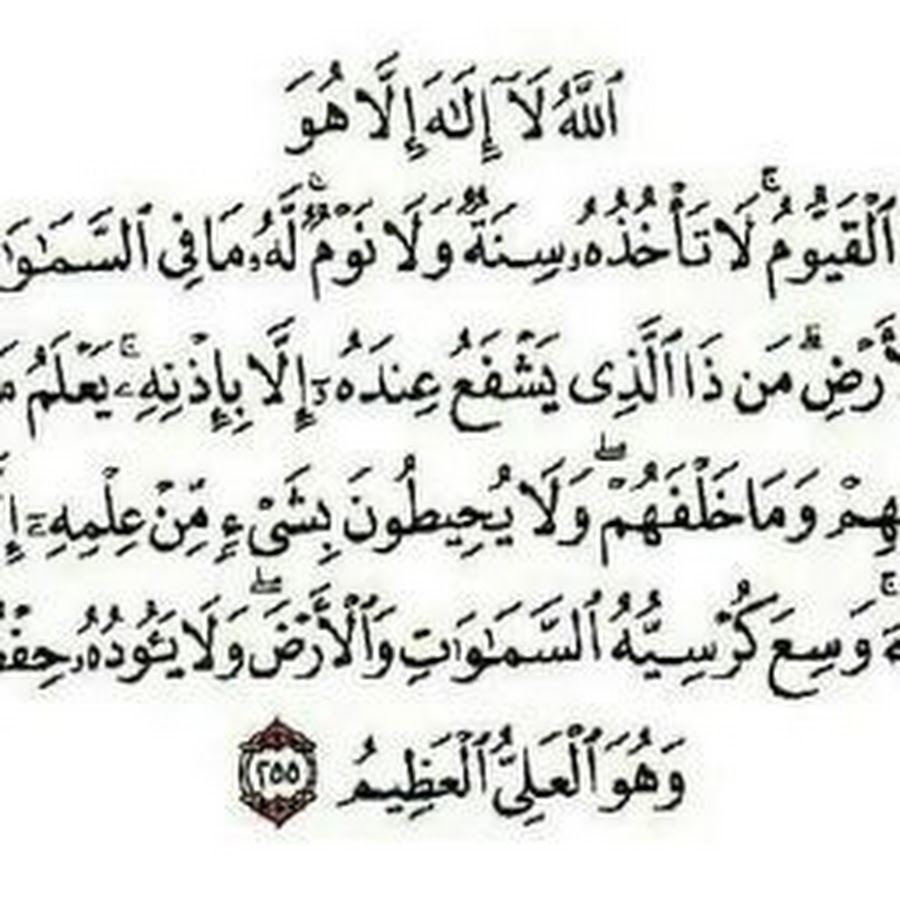 ٱللَّهُ لَآ إِلَـٰهَ إِلَّا هُوَ
ٱلْقَيُّومُ ۚ لَا تَأْخُذُهُۥ سِنَةٌ وَلَا نَوْمٌ ۚ لَّهُۥ مَا فِى ٱلسَّمَـٰوَٰ
رْضِ ۗ مَن ذَا ٱلَّذِى يَشْفَعُ عِندَهُۥٓ إِلَّا بِإِذْنِهِۦ ۚ يَعْلَمُ مَ
هِمْ وَمَا خَلْفَهُمْ ۖ وَلَا يُحِيطُونَ بِشَىْءٍ مِّنْ عِلْمِهِۦٓ إِ
ۚ وَسِعَ كُرْسِيُّهُ ٱلسَّمَـٰوَٰتِ وَٱلْأَرْضَ ۖ وَلَا يَـُٔودُهُۥ حِفْ
وَهُوَ ٱلْعَلِىُّ ٱلْعَظِيمُ ٢٥٥